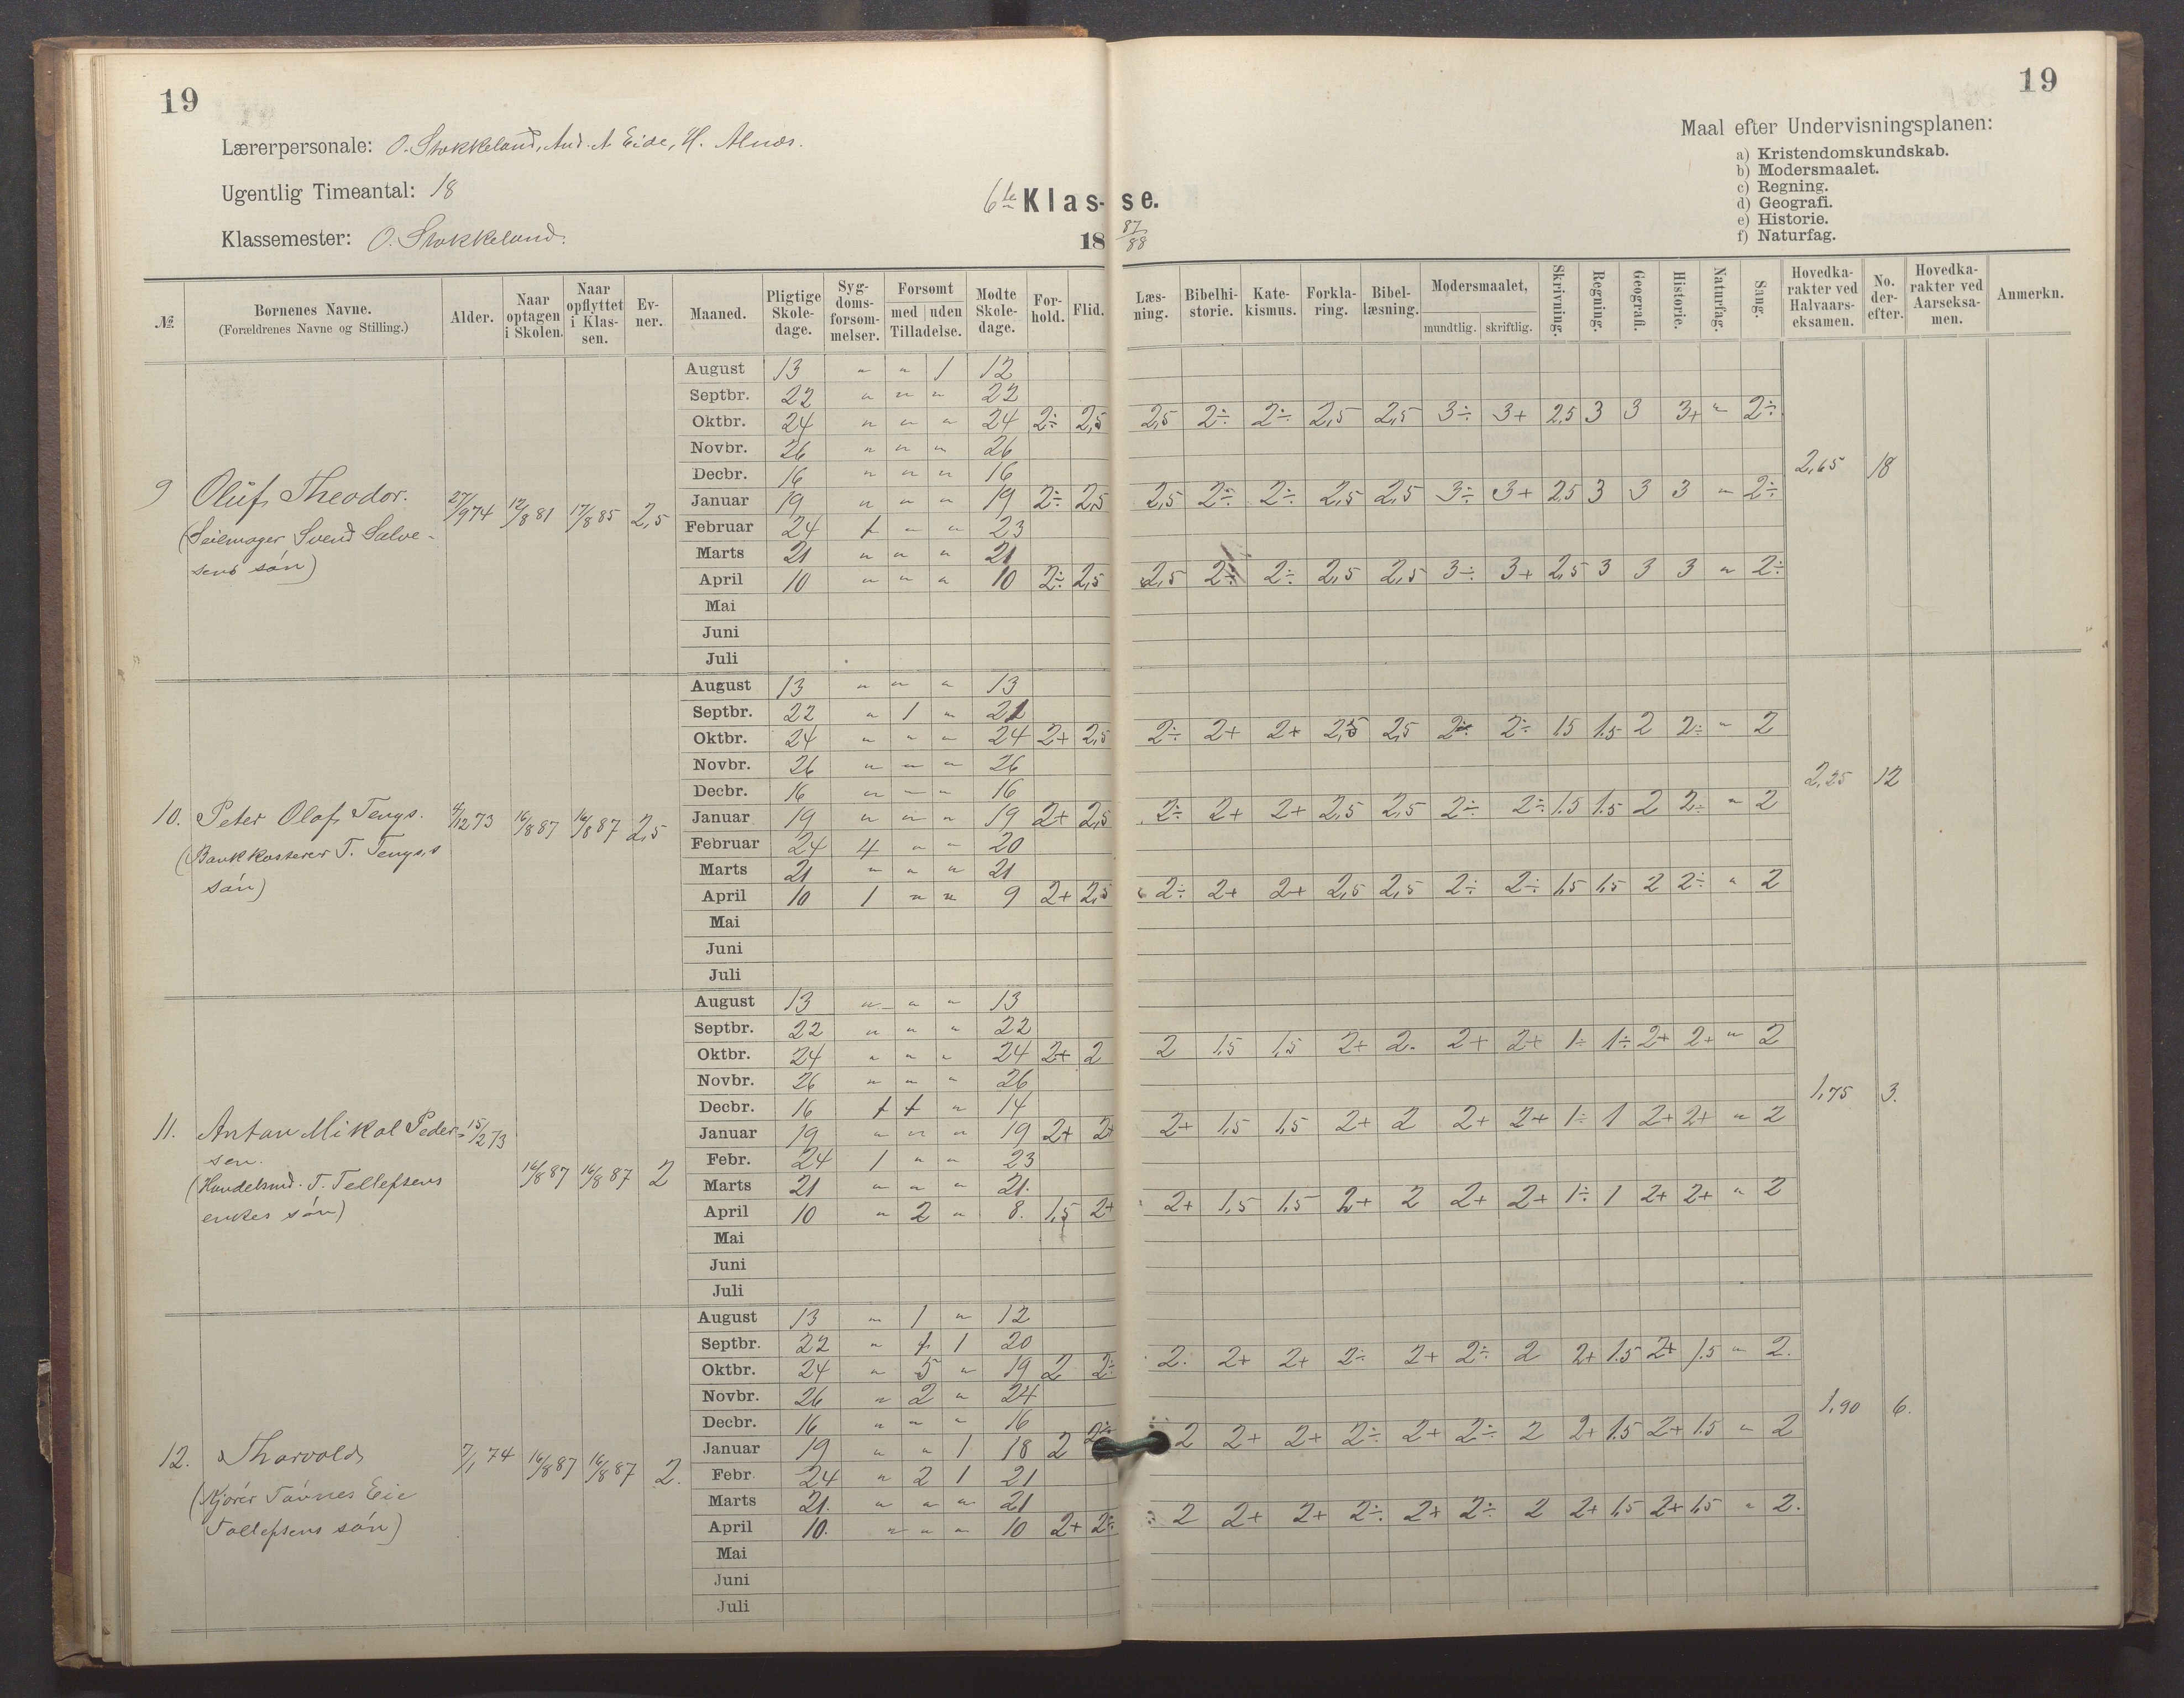 19
19
Lærerpersonale: O. Stokkeland, And. A. Eide, H. Alnæs.
Ugentlig Timeantal: 18
Klassemester: O. Stokkeland.
6te Klas- se.
18 87/88
Maal efter Undervisningsplanen:
a) Kristendomskundskab.
b) Modersmaalet.
c) Regning.
d) Geografi.
e) Historie.
f) Naturfag.
№ Børnenes Navne. (Forældrenes Navne og Stilling.) Alder. Naar optagen i Skolen. Naar opflyttet i Klassen. Evner. Maaned. Pligtige Skoledage. Sygdomsforsommelser. Forsømt med uden Tilladelse. Mødte Skoledage. Forhold. Flid. Læsning. Bibelhistorie. Katekismus. Forklaring. Bibellæsning. Modersmaalet, mundtlig. skriftlig. Skrivning. Regning. Geografi. Historie. Naturfag. Sang. Hovedkarakter ved Halvaarseksamen. No. derefter. Hovedkarakter ved Aarseksamen. Anmerkn.
9 Oluf Theodor. (Seilmager Svend Salvesens søn) 27/9 74 12/8 81 17/8 85 2,5 2,65 18
August 13 " " 1 12
Septbr. 22 " " " 22
Oktbr. 24 " " " 24 2÷ 2,5 2,5 2÷ 2÷ 2,5 2,5 3÷ 3+ 2,5 3 3 3+ " 2÷
Novbr. 26 " " " 26
Decbr. 16 " " " 16
Januar 19 " " " 19 2÷ 2,5 2,5 2÷ 2÷ 2,5 2,5 3÷ 3+ 2,5 3 3 3 " 2÷
Februar 24 1 " " 23
Marts 21 " " " 21
April 10 " " " 10 2÷ 2,5 2,5 2÷ 2÷ 2,5 2,5 3÷ 3+ 2,5 3 3 3 " 2÷
Mai
Juni
Juli
10. Peter Olaf Tengs. (Bankkasserer T. Tengs,s søn) 4/12 73 16/8 87 16/8 87 2,5 2,25 12
August 13 " " " 13
Septbr. 22 " 1 " 21
Oktbr. 24 " " " 24 2+ 2,5 2÷ 2+ 2+ 2,5 2,5 2÷ 2÷ 1,5 1,5 2 2÷ " 2
Novbr. 26 " " " 26
Decbr. 16 " " " 16
Januar 19 " " " 19 2+ 2,5 2÷ 2+ 2+ 2,5 2,5 2÷ 2÷ 1,5 1,5 2 2÷ " 2
Februar 24 4 " " 20
Marts 21 " " " 21
April 10 1 " " 9 2+ 2,5 2÷ 2+ 2+ 2,5 2,5 2÷ 2÷ 1,5 1,5 2 2÷ " 2
Mai
Juni
Juli
11. Anton Mikal Pedersen. (Handelsmd. T. Tellefsens enkes søn) 15/2 73 16/8 87 16/8 87 2 1,75 3.
August 13 " " " 13
Septbr. 22 " " " 22
Oktbr. 24 " " " 24 2+ 2 2 1,5 1,5 2+ 2. 2+ 2+ 1÷ 1÷ 2+ 2+ " 2
Novbr. 26 " " " 26
Decbr. 16 1 1 " 14
Januar 19 " " " 19 2+ 2+ 2+ 1,5 1,5 2+ 2 2+ 2+ 1÷ 1 2+ 2+ " 2
Febr. 24 1 " " 23
Marts 21 " " " 21.
April 10 " 2 " 8. 1,5 2+ 2+ 1,5 1,5 2+ 2 2+ 2+ 1÷ 1 2+ 2+ " 2
Mai
Juni
Juli
12. Thorvald, (Kjører Tønnes Eie Tollefsens søn) 7/1 74 16/8 87 16/8 87 2. 1,90 6.
August 13 " 1 " 12
Septbr. 22 " 1 1 20
Oktbr. 24 " 5 " 19 2 2÷ 2. 2+ 2+ 2÷ 2+ 2÷ 2 2+ 1,5 2+ 1,5 " 2.
Novbr. 26 " 2 " 24
Decbr. 16 " " " 16
Januar 19 " " 1 18 2 2÷ 2 2+ 2+ 2÷ 2+ 2÷ 2 2+ 1,5 2+ 1,5 " 2
Febr. 24 " 2 1 21
Marts 21. " " " 21
April 10. " " " 10 2+ 2÷ 2 2+ 2+ 2÷ 2+ 2÷ 2 2+ 1,5 2+ 1,5 " 2.
Mai
Juni
Juli